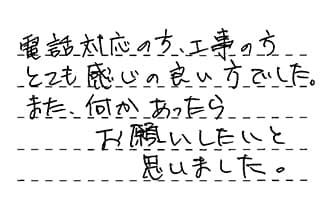 電話対応の方、工事の方
とても感じの良い方でした。
また、何かあったら
お願いしたいと
思いました。